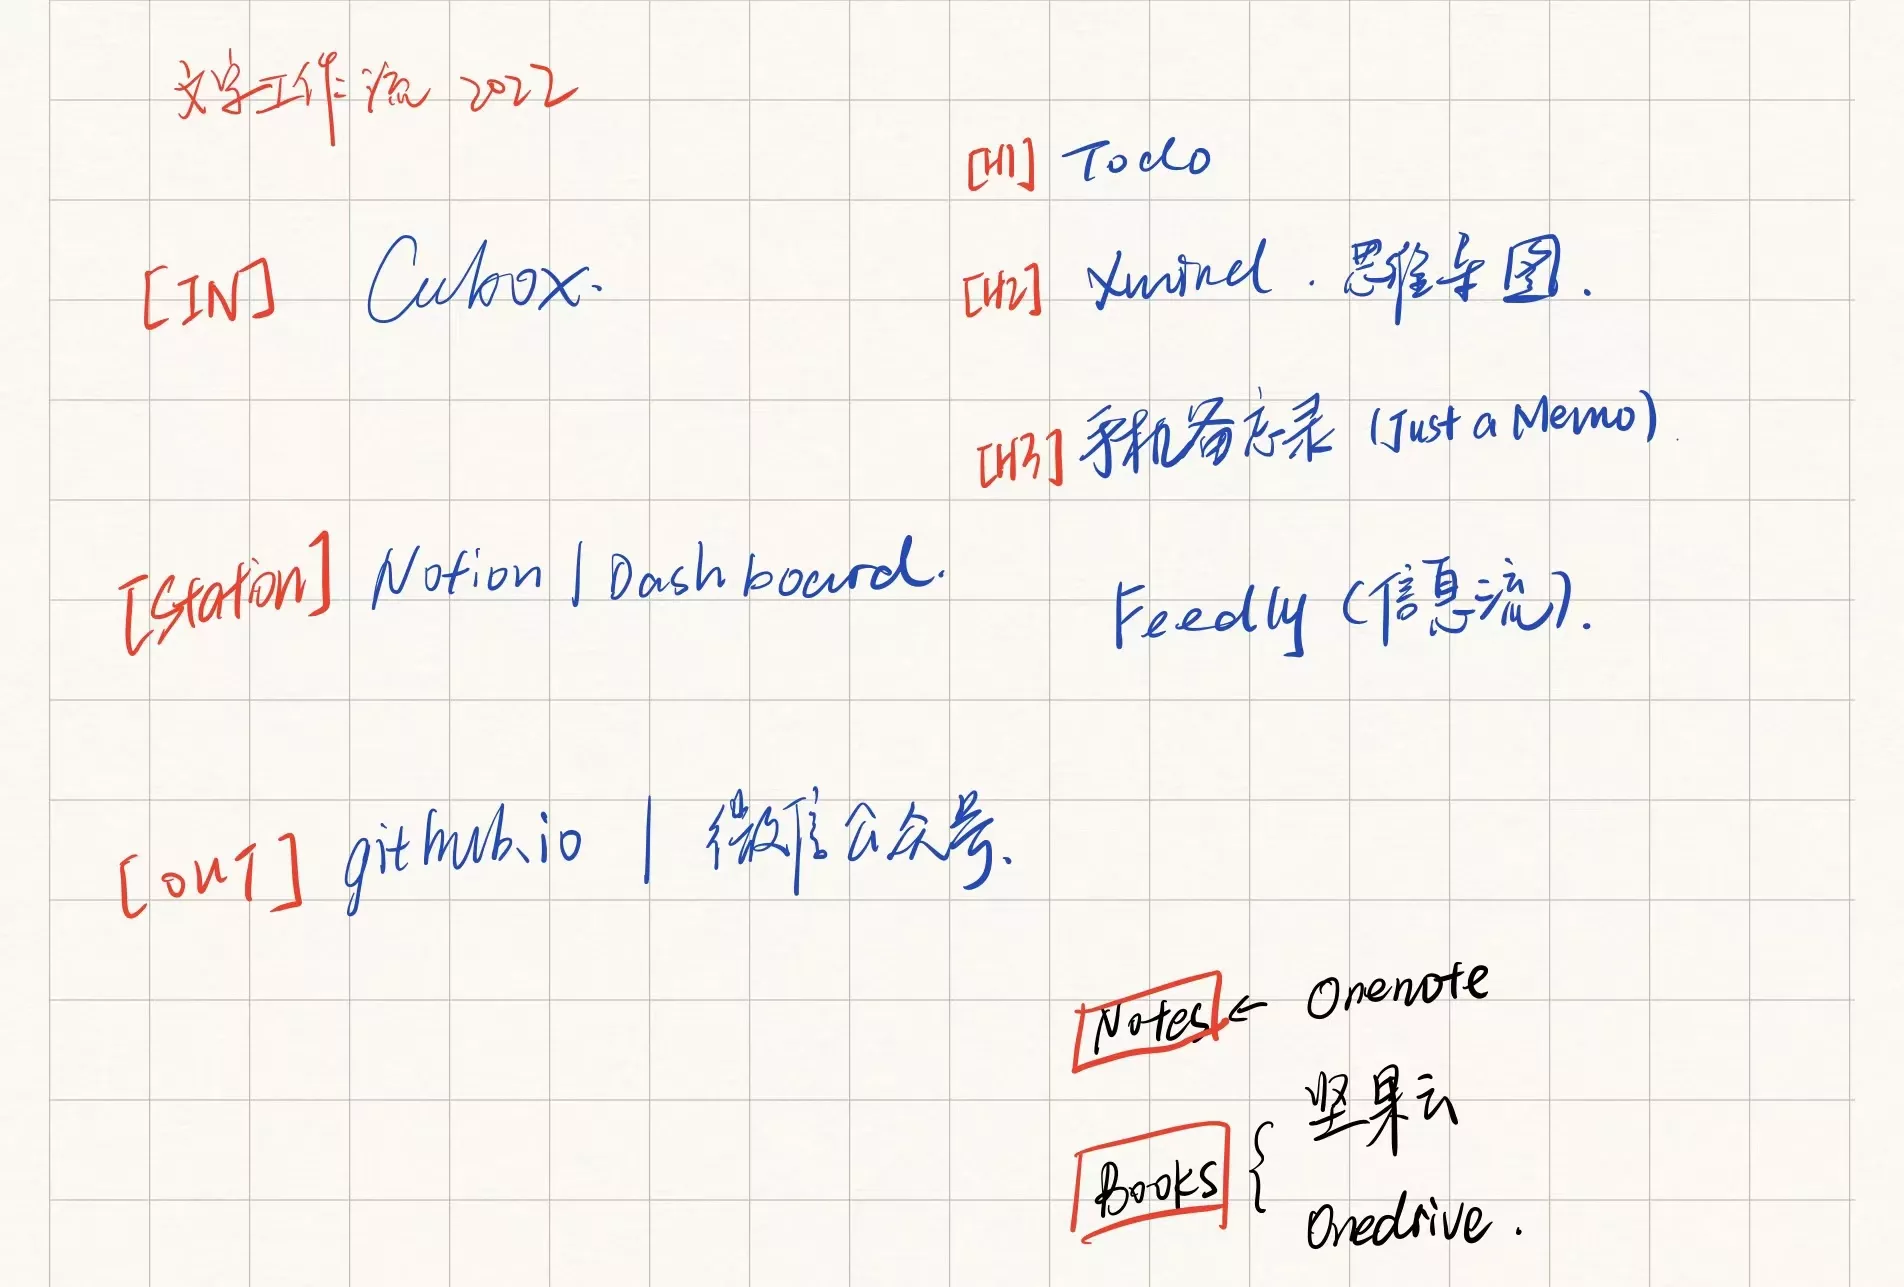 文字工作流 2022
[IN] Cubox.
[Station] Notion | Dashboard.
[OUT] github.io | 微信公众号.
[H1] Todo
[H2] Xmind. 思维导图.
[H3] 手机备忘录 (Just a Memo)
Feedly (信息流).
Notes ← Onenote
Books { 坚果云
Onedrive.